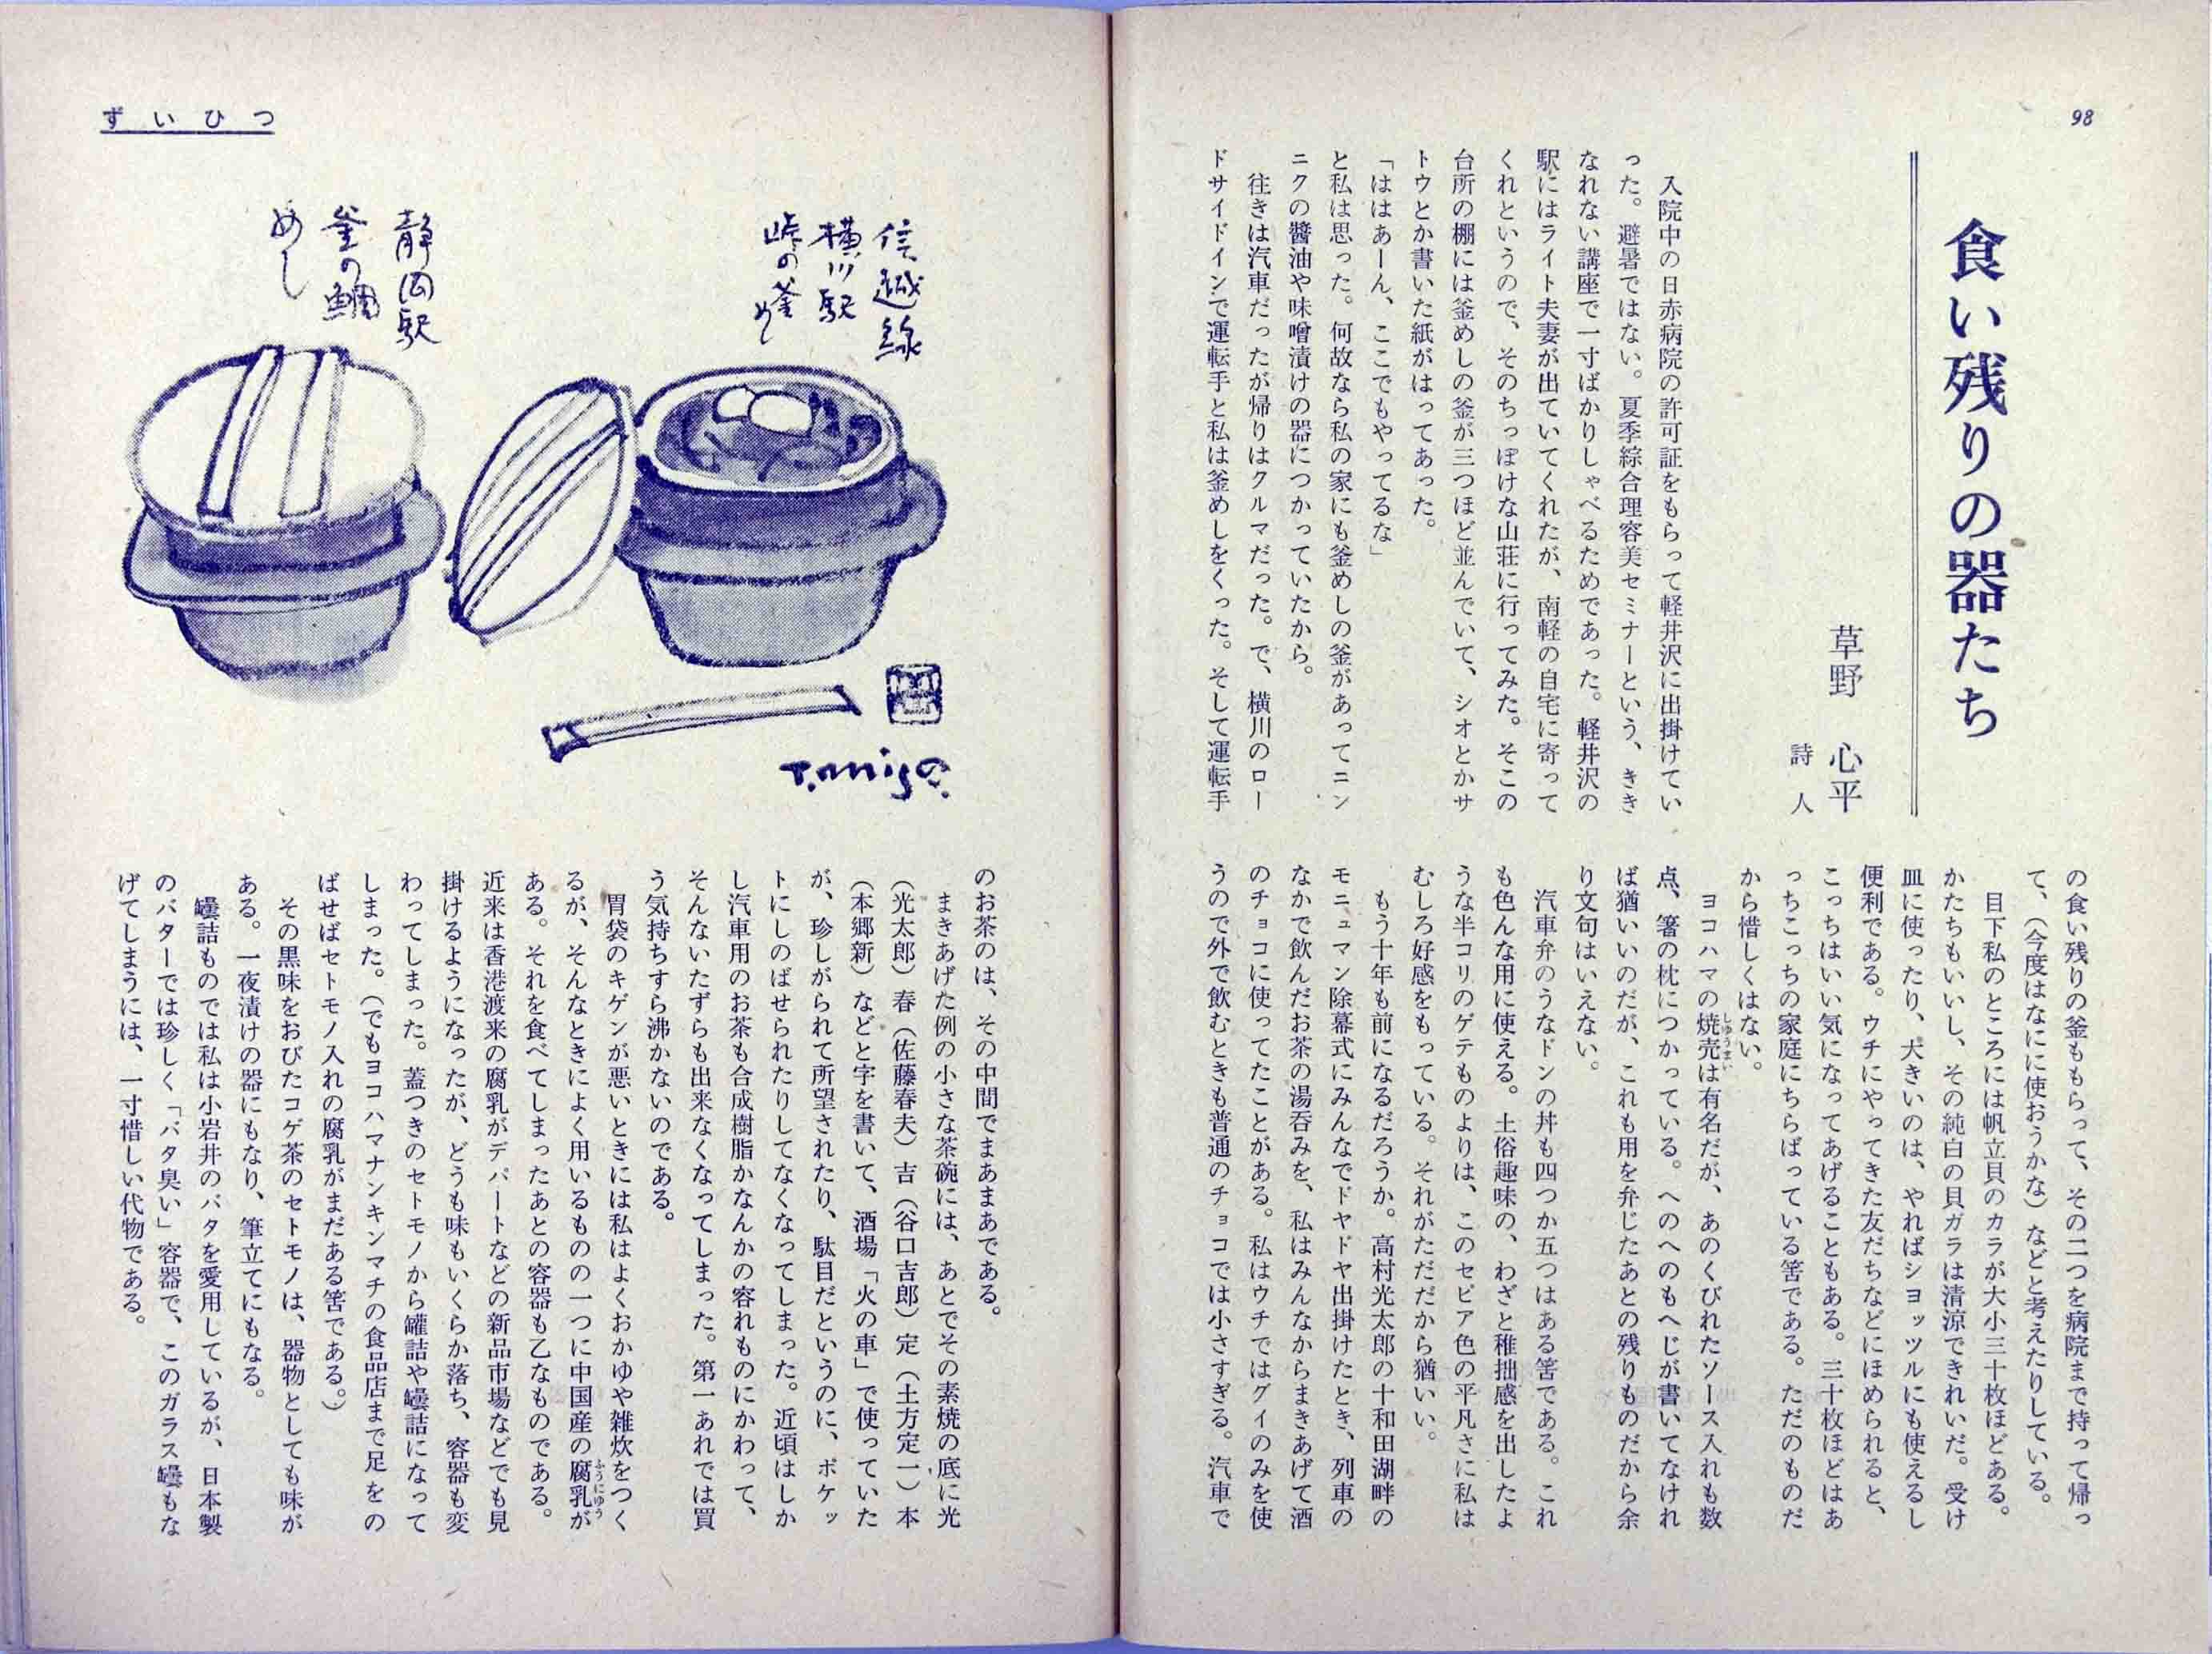 98
食い残りの器たち
草野 心平
詩人
入院中の日赤病院の許可証をもらって軽井沢に出掛けてい
った。避暑ではない。夏季綜合理容美セミナーという、きき
なれない講座で一寸ばかりしゃべるためであった。軽井沢の
駅にはライト夫妻が出ていてくれたが、南軽の自宅に寄って
くれというので、そのちっぽけな山荘に行ってみた。そこの
台所の棚には釜めしの釜が三つほど並んでいて、シオとかサ
トウとか書いた紙がはってあった。
「ははあーん、ここでもやってるな」
と私は思った。何故なら私の家にも釜めしの釜があってニン
ニクの醬油や味噌漬けの器につかっていたから。
往きは汽車だったが帰りはクルマだった。で、横川のロー
ドサイドインで運転手と私は釜めしをくった。そして運転手
の食い残りの釜ももらって、その二つを病院まで持って帰っ
て、（今度はなにに使おうかな）などと考えたりしている。
目下私のところには帆立貝のカラが大小三十枚ほどある。
かたちもいいし、その純白の貝ガラは清涼できれいだ。受け
皿に使ったり、大きいのは、やればショッツルにも使えるし
便利である。ウチにやってきた友だちなどにほめられると、
こっちはいい気になってあげることもある。三十枚ほどはあ
っちこっちの家庭にちらばっている筈である。ただのものだ
から惜しくはない。
ヨコハマの焼売しゅうまいは有名だが、あのくびれたソース入れも数
点、箸の枕につかっている。へのへのもへじが書いてなけれ
ば猶いいのだが、これも用を弁じたあとの残りものだから余
り文句はいえない。
汽車弁のうなドンの丼も四つか五つはある筈である。これ
も色んな用に使える。土俗趣味の、わざと稚拙感を出したよ
うな半コリのゲテものよりは、このセピア色の平凡さに私は
むしろ好感をもっている。それがただだから猶いい。
もう十年も前になるだろうか。高村光太郎の十和田湖畔の
モニュマン除幕式にみんなでドヤドヤ出掛けたとき、列車の
なかで飲んだお茶の湯呑みを、私はみんなからまきあげて酒
のチョコに使ってたことがある。私はウチではグイのみを使
うので外で飲むときも普通のチョコでは小さすぎる。汽車で
ずいひつ
信越線
横川駅
峠の釜めし
静岡駅
釜の鯛
めし
のお茶のは、その中間でまあまあである。
まきあげた例の小さな茶碗には、あとでその素焼の底に光
（光太郎）春（佐藤春夫）吉（谷口吉郎）定（土方定一）本
（本郷新）などと字を書いて、酒場「火の車」で使っていた
が、珍しがられて所望されたり、駄目だというのに、ポケッ
トにしのばせられたりしてなくなってしまった。近頃はしか
し汽車用のお茶も合成樹脂かなんかの容れものにかわって、
そんないたずらも出来なくなってしまった。第一あれでは買
う気持ちすら沸かないのである。
胃袋のキゲンが悪いときには私はよくおかゆや雑炊をつく
るが、そんなときによく用いるものの一つに中国産の腐乳ふうにゅうが
ある。それを食べてしまったあとの容器も乙なものである。
近来は香港渡来の腐乳がデパートなどの新品市場などでも見
掛けるようになったが、どうも味もいくらか落ち、容器も変
わってしまった。蓋つきのセトモノから罐詰や罎詰になって
しまった。（でもヨコハマナンキンマチの食品店まで足をの
ばせばセトモノ入れの腐乳がまだある筈である。）
その黒味をおびたコゲ茶のセトモノは、器物としても味が
ある。一夜漬けの器にもなり、筆立てにもなる。
罎詰ものでは私は小岩井のバタを愛用しているが、日本製
のバターでは珍しく「バタ臭い」容器で、このガラス罎もな
げてしまうには、一寸惜しい代物である。